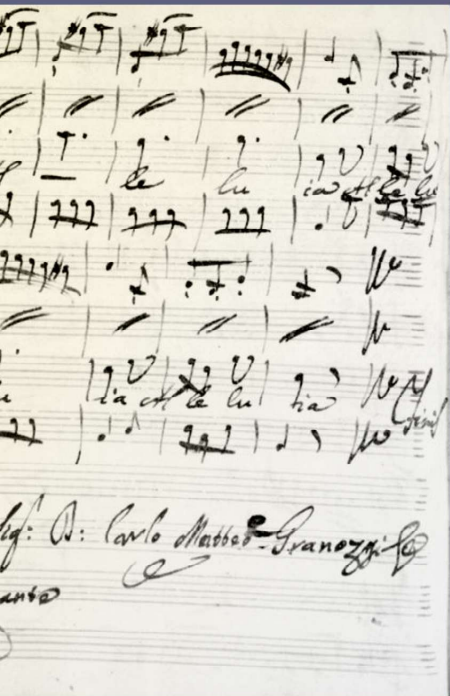 le lu ia al le lu
ia al le lu ia
Finis
Sig: D: Carlo Matteo Granozzi